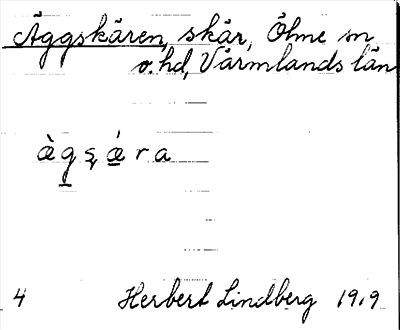 Äggskären, skär, Ölme sn
o. hd, Värmlands län
ä̀g̲ş ǽ̲ra
4 Herbert Lindberg 1919